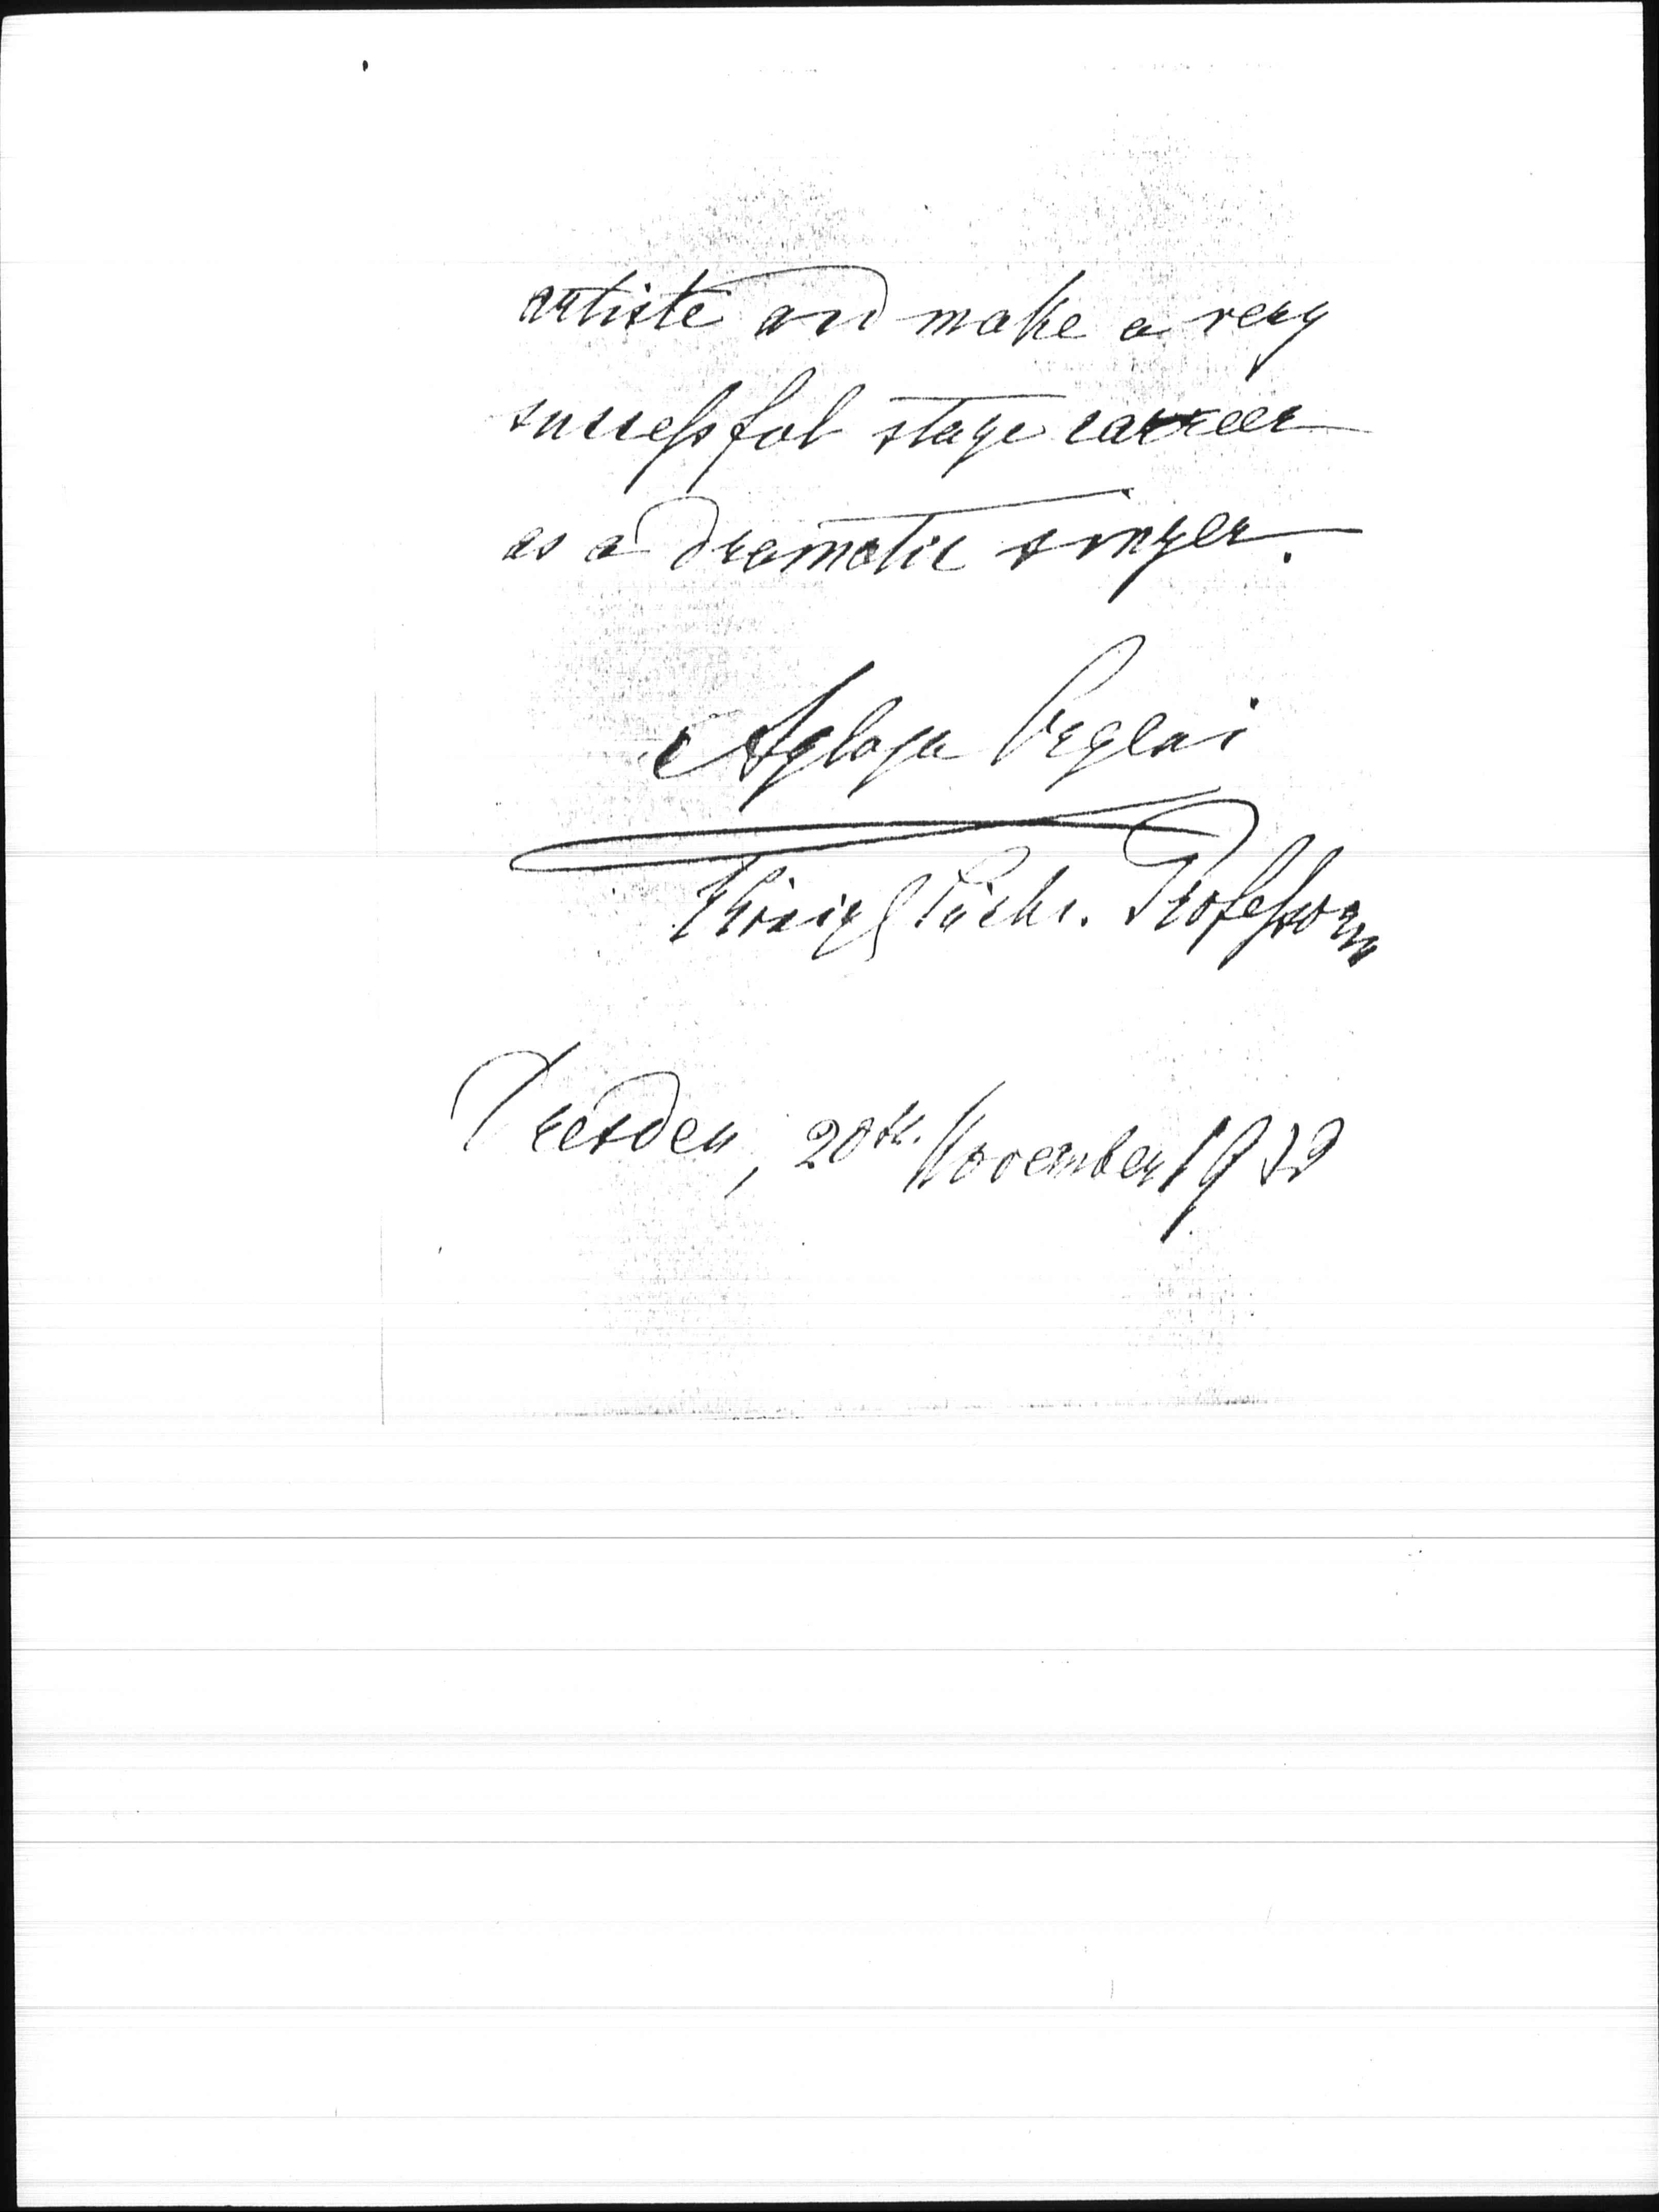 artiste and make a very
successful stage career
as a dramatic singer.
Aglaja Orgeni
Königl Sächs. Professorin
Dresden, 20th. November